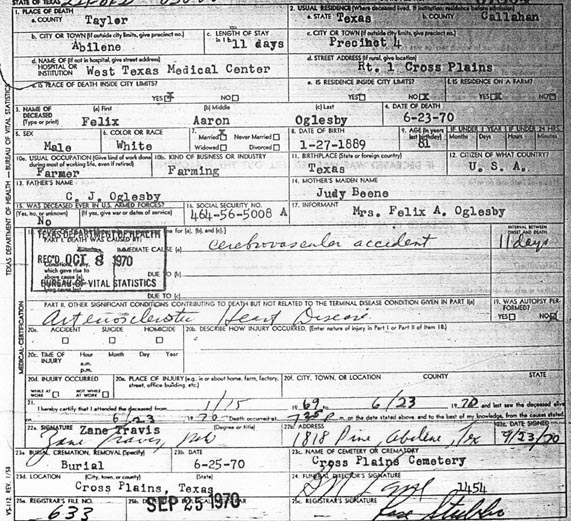 STATE OF TEXAS
1. PLACE OF DEATH
a. COUNTY Taylor
2. USUAL RESIDENCE (Where deceased lived. If institution: residence before admission)
a. STATE Texas b. COUNTY Callahan
b. CITY OR TOWN (If outside city limits, give precinct no.) Abilene
c. LENGTH OF STAY 11 days
c. CITY OR TOWN (If outside city limits, give precinct no.) Precinct 4
d. NAME OF (If not in hospital, give street address) HOSPITAL OR INSTITUTION West Texas Medical Center
d. STREET ADDRESS (If rural, give location) Rt. 1 Cross Plains
e. IS PLACE OF DEATH INSIDE CITY LIMITS? YES NO
e. IS RESIDENCE INSIDE CITY LIMITS? YES NO
f. IS RESIDENCE ON A FARM? YES NO
3. NAME OF DECEASED (Type or print)
(a) First Felix (b) Middle Aaron (c) Last Oglesby
4. DATE OF DEATH 6-23-70
5. SEX Male
6. COLOR OR RACE White
7. Married Never Married Widowed Divorced
8. DATE OF BIRTH 1-27-1889
9. AGE (In years last birthday) 81
IF UNDER 1 YEAR Months Days
IF UNDER 24 HRS. Hours Minutes
10a. USUAL OCCUPATION (Give kind of work done during most of working life, even if retired) Farmer
10b. KIND OF BUSINESS OR INDUSTRY Farming
11. BIRTHPLACE (State or foreign country) Texas
12. CITIZEN OF WHAT COUNTRY? U. S. A.
13. FATHER'S NAME C. J. Oglesby
14. MOTHER'S MAIDEN NAME Judy Beene
15. WAS DECEASED EVER IN U.S. ARMED FORCES? (Yes, no, or unknown) No (If yes, give war or dates of service)
16. SOCIAL SECURITY NO. 464-56-5008 A
17. INFORMANT Mrs. Felix A. Oglesby
PART I. DEATH WAS CAUSED BY:
IMMEDIATE CAUSE (a) cerebrovascular accident
INTERVAL BETWEEN ONSET AND DEATH 11 days
TEXAS DEPARTMENT OF HEALTH
REC'D OCT 8 1970
BUREAU OF VITAL STATISTICS
DUE TO (b)
DUE TO (c)
PART II. OTHER SIGNIFICANT CONDITIONS CONTRIBUTING TO DEATH BUT NOT RELATED TO THE TERMINAL DISEASE CONDITION GIVEN IN PART I(a)
Arteriosclerotic Heart Disease
19. WAS AUTOPSY PERFORMED? YES NO
20a. ACCIDENT SUICIDE HOMICIDE
20b. DESCRIBE HOW INJURY OCCURRED. (Enter nature of injury in Part I or Part II of Item 18.)
20c. TIME OF INJURY Hour Month Day Year a.m. p.m.
20d. INJURY OCCURRED WHILE AT WORK NOT WHILE AT WORK
20e. PLACE OF INJURY (e.g. in or about home, farm, factory, street, office building, etc.)
20f. CITY, TOWN, OR LOCATION COUNTY STATE
21. I hereby certify that I attended the deceased from 1/15 1969 to 6/23 1970 and last saw the deceased alive
6/23 1970 Death occurred at m. on the date stated above; and to the best of my knowledge, from the causes stated.
22a. SIGNATURE Zane Travis (Degree or title)
Zane Travis
22b. ADDRESS 1818 Pine, Abilene, Tex
22c. DATE SIGNED 9/23/70
23a. BURIAL, CREMATION, REMOVAL (Specify) Burial
23b. DATE 6-25-70
23c. NAME OF CEMETERY OR CREMATORY Cross Plains Cemetery
23d. LOCATION (City, town, or county) (State) Cross Plains, Texas
24. FUNERAL DIRECTOR'S SIGNATURE
25a. REGISTRAR'S FILE NO. 633
SEP 25 1970
25c. REGISTRAR'S SIGNATURE
TEXAS DEPARTMENT OF HEALTH — BUREAU OF VITAL STATISTICS
MEDICAL CERTIFICATION
VS-112 REV. 1/58